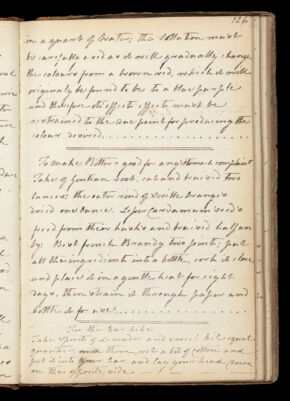 126
in a quart of Water; the Solution must
be carefully used as it will gradually change
the colours from a brown red, which it will
originally be found to be to a blue purple
and therefore its effects must be
restrained to the due point for producing the
colour desired.
To make Bitters good for any Stomach complaint
Take of Gentian Root, cut and bruised two
ounces; the outer rind of Seville Oranges
dried one ounce. Lesser Cardamum seeds
freed from their husks and bruised half an
oz; Best french Brandy two pints; put
all the ingredients into a bottle, cork it close
and place it in a gentle heat for eight
days, then strain it through paper and
bottle it for use
For the Ear Ache
Take Spirit of Lavender and equal
quantities, them, wet a bit of Cotton and
put it into your Ear, and lay your head down
on the opposite side